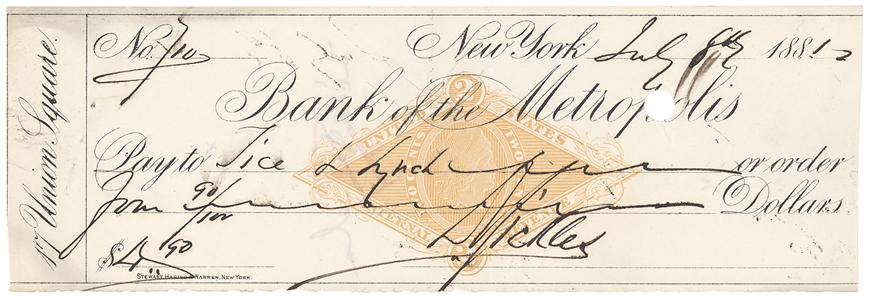 17 Union Square.
No. 710 New York July 8th 1881
Bank of the Metropolis
Pay to Tice & Lynch or order
Four 90/100 Dollars
$4 90
STEWART, WARREN, NEW YORK.
UNITED STATES
INTERNAL REVENUE
TWO CENTS
2